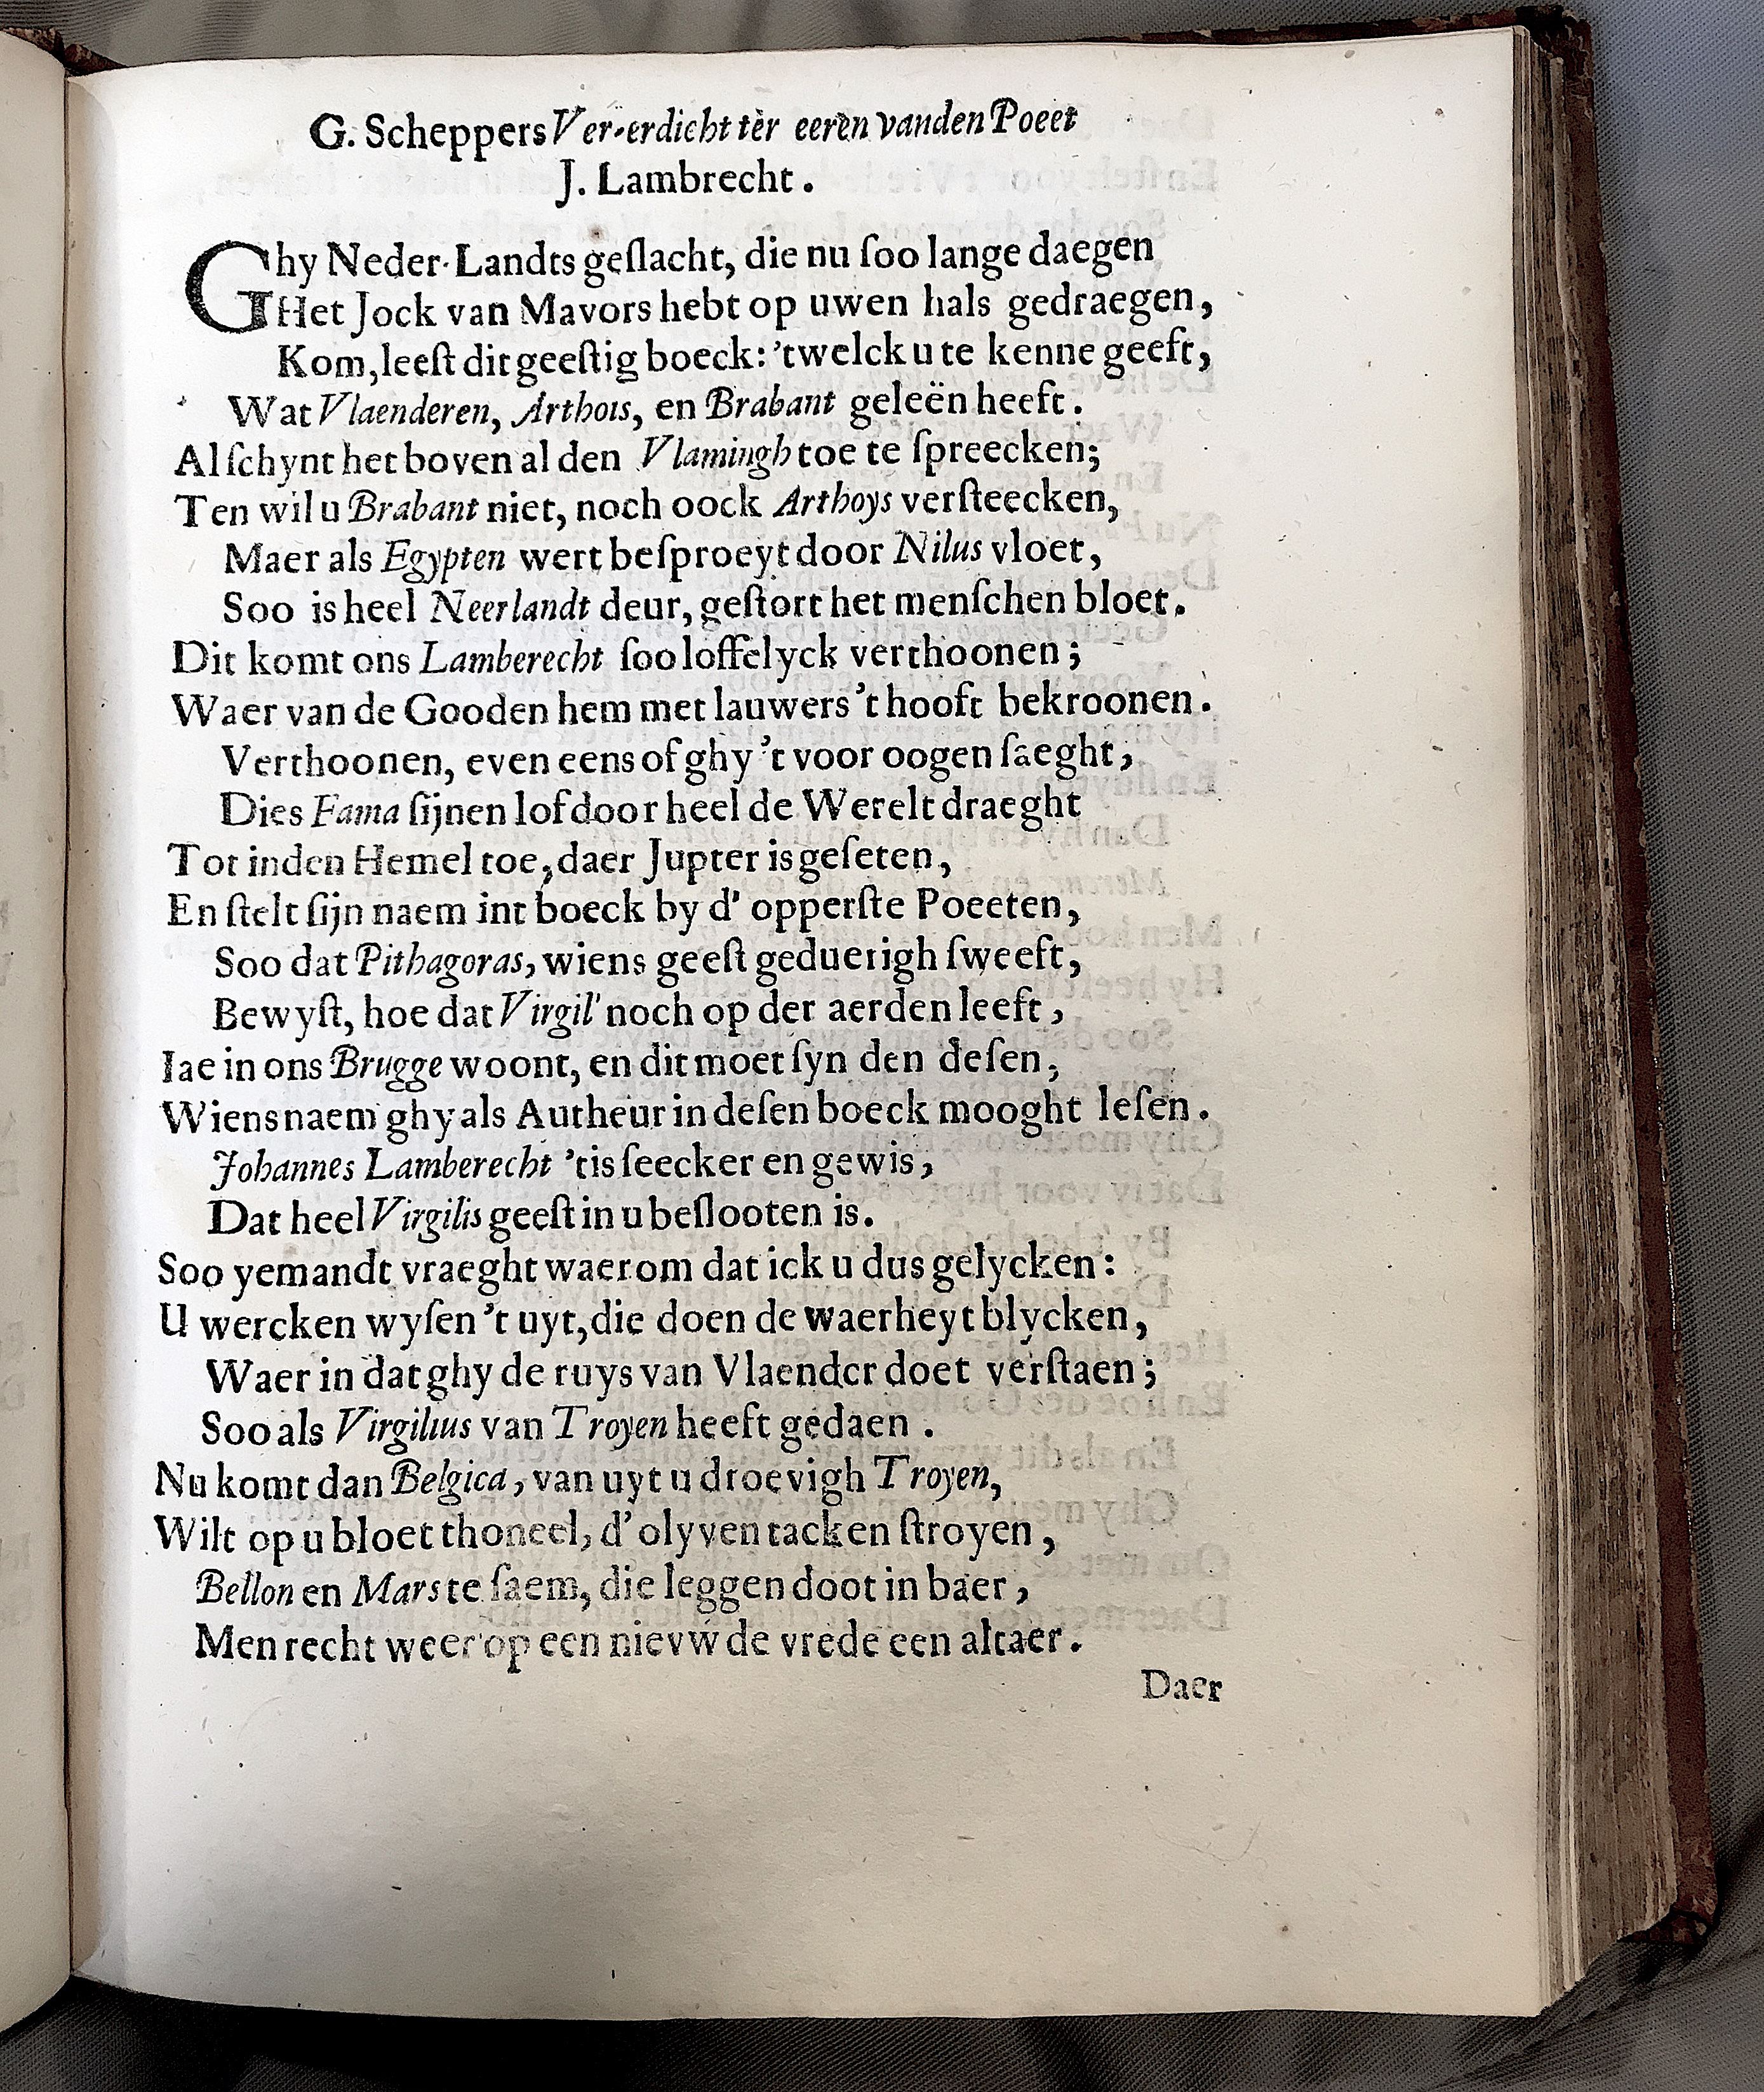 G. Scheppers Ver-erdicht ter eeren vanden Poeet
J. Lambrecht.
Ghy Neder-Landts geſlacht, die nu ſoo lange daegen
Het Jock van Mavors hebt op uwen hals gedraegen,
Kom, leeſt dit geeſtig boeck: 'twelck u te kenne geeft,
Wat Vlaenderen, Arthois, en Brabant geleën heeft.
Al ſchynt het boven al den Vlamingh toe te ſpreecken;
Ten wil u Brabant niet, noch oock Arthoys verſteecken,
Maer als Egypten wert beſproeyt door Nilus vloet,
Soo is heel Neerlandt deur, geſtort het menſchen bloet.
Dit komt ons Lamberecht ſoo loffelyck verthoonen;
Waer van de Gooden hem met lauwers 't hooft bekroonen.
Verthoonen, even eens of ghy 't voor oogen ſaeght,
Dies Fama ſijnen lof door heel de Werelt draeght
Tot inden Hemel toe, daer Jupter is geſeten,
En ſtelt ſijn naem int boeck by d' opperſte Poeeten,
Soo dat Pithagoras, wiens geeſt geduerigh ſweeft,
Bewyſt, hoe dat Virgil' noch op der aerden leeft,
Iae in ons Brugge woont, en dit moet ſyn den deſen,
Wiens naem ghy als Autheur in deſen boeck mooght leſen.
Johannes Lamberecht 'tis ſeecker en gewis,
Dat heel Virgilis geeſt in u beſlooten is.
Soo yemandt vraeght waerom dat ick u dus gelycken:
U wercken wyſen 't uyt, die doen de waerheyt blycken,
Waer in dat ghy de ruys van Vlaender doet verſtaen;
Soo als Virgilius van Troyen heeft gedaen.
Nu komt dan Belgica, van uyt u droevigh Troyen,
Wilt op u bloet thoneel, d' olyven tacken ſtroyen,
Bellon en Mars te ſaem, die leggen doot in baer,
Men recht weer op een nievw de vrede een altaer.
Daer